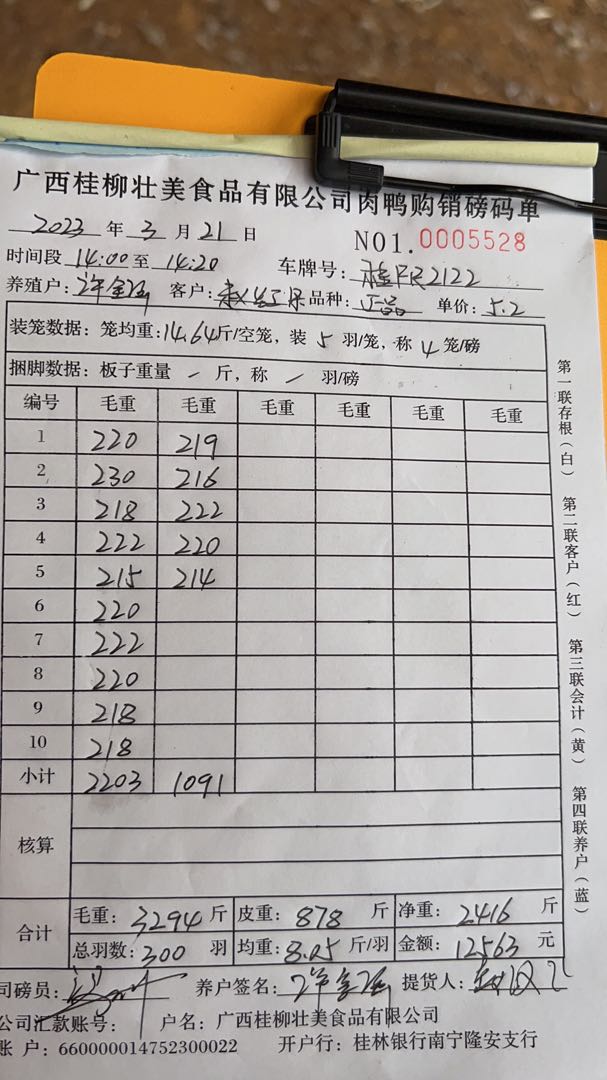 广西桂柳壮美食品有限公司肉鸭购销磅码单
2023 年 3 月 21 日 NO1. 0005528
时间段 14:00 至 14:20 车牌号: 2122
养殖户: 许 客户: 赵红 品种: 正品 单价: 5.2
装笼数据: 笼均重: 14.64 斤/空笼, 装 5 羽/笼, 称 4 笼/磅
捆脚数据: 板子重量 / 斤, 称 / 羽/磅
编号 毛重 毛重 毛重 毛重 毛重 毛重
1 220 219
2 230 216
3 218 222
4 222 220
5 215 214
6 220
7 222
8 220
9 218
10 218
小计 2203 1091
核算
合计 毛重: 3294 斤 皮重: 878 斤 净重: 2416 斤
总羽数: 300 羽 均重: 8.05 斤/羽 金额: 12563 元
司磅员: 养户签名: 许 提货人:
公司汇款账号: 户名: 广西桂柳壮美食品有限公司
账 户: 660000014752300022 开户行: 桂林银行南宁隆安支行
第一联存根(白) 第二联客户(红) 第三联会计(黄) 第四联养户(蓝)